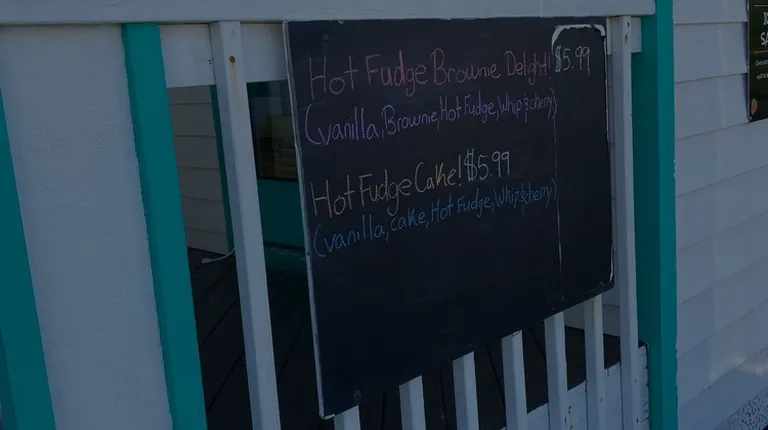 Hot Fudge Brownie Delight! $5.99
(vanilla, Brownie, Hot Fudge, Whip & cherry)
Hot Fudge Cake! $5.99
(vanilla, cake, Hot Fudge, Whip & cherry)